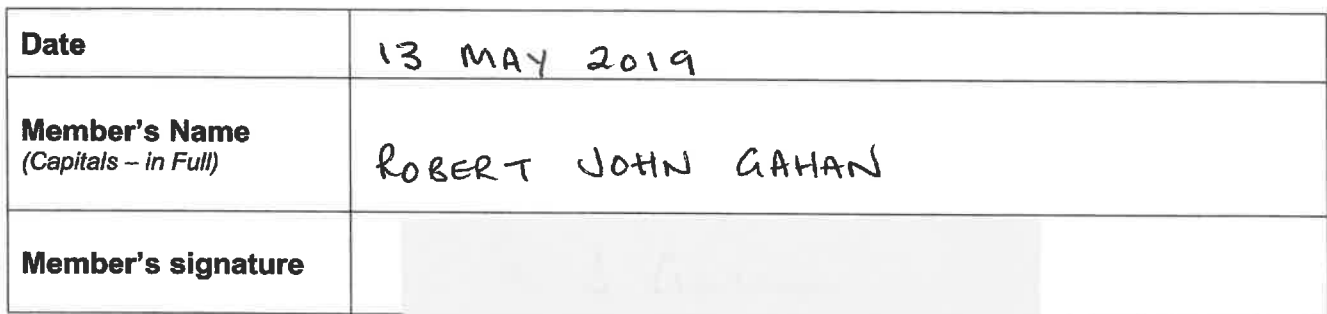 Date 13 MAY 2019
Member's Name
(Capitals – in Full) ROBERT JOHN GAHAN
Member's signature